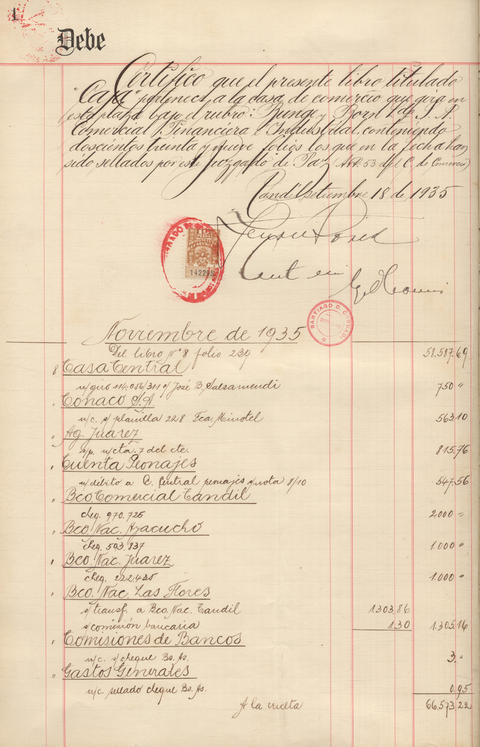 1
Debe
Certifico que el presente libro titulado
"Caja" pertenece a la casa de comercio que gira en
esta plaza bajo el rubro: Bunge y Born Ltda. S. A.
Comercial, Financiera e Industrial conteniendo
doscientos treinta y nueve folios los que en la fecha han
sido sellados por este juzgado de Paz. Art. 53 del C. de Comercio)
Tandil, setiembre 18 de 1935
SANTIAGO
Noviembre de 1935
Del libro Nº 8 folio 239 58.587,69
Casa Central
n/giro 114.056/311 o/ José B. Salsamendi 750 "
Conaco S.A.
n/c. s/planilla 228 Fca. Minotel 563.10
Ag. Juarez
n/cta. 7 del cte. 815,76
Cuenta Peonajes
n/débito a C. Central peonajes s/nota 8/10 547.56
Bco Comercial Tandil
cheq. 970.725 2.000 "
Bco Nac. Ayacucho
cheq. 593.137 1.000 "
Bco. Nac. Juarez
cheq. 222.425 1.000 "
Bco. Nac. Las Flores
s/transf. a Bco. Nac. Tandil 1.303,86
s/comisión bancaria 1.30 1.305,16
Comisiones de Bancos
n/c. s/cheque Bs. As. 3. "
Gastos Generales
n/c sellado cheque Bs. As. 0.95
A la vuelta 66.573,22